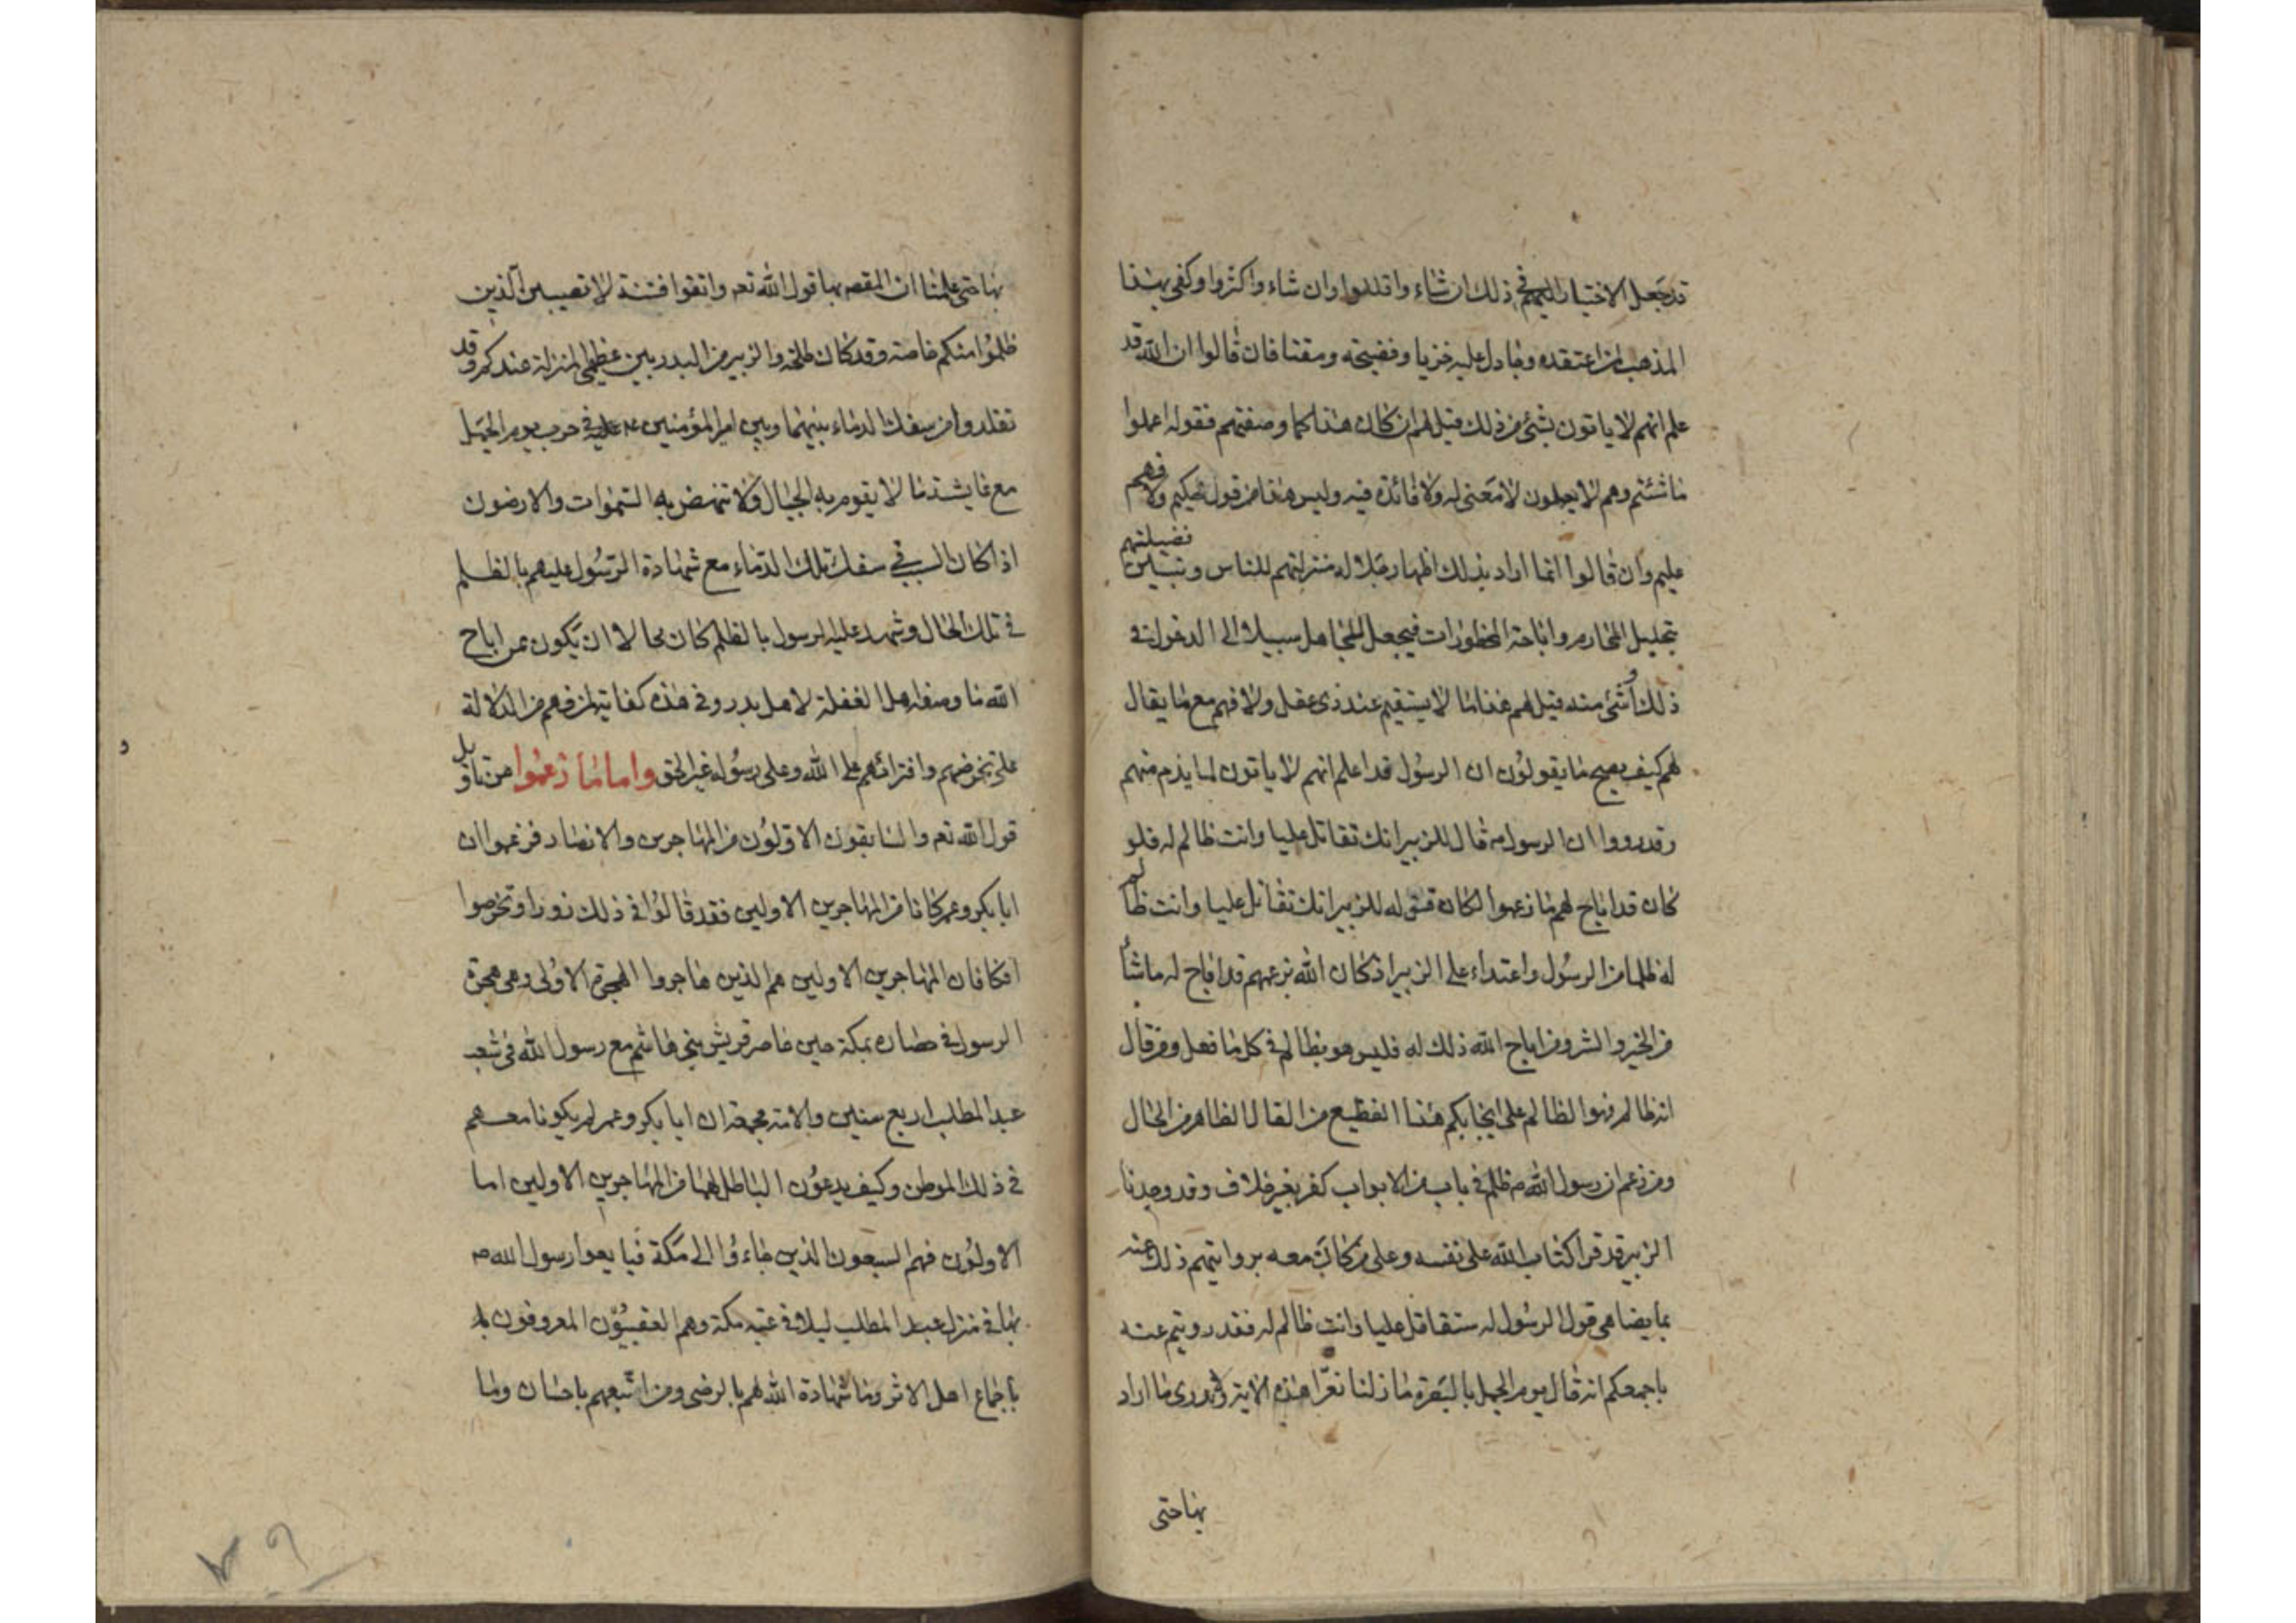 قد جعل الاختيار اليهم في ذلك ان شاء واقللوا وان شاء واكثروا وكفى بهذا
المذهب لمن اعتقده وجادل عليه خزيا وفضيحة ومقتا فان قالوا ان الله قد
علم انهم لا ياتون بشئ من ذلك قيل لهم ان كان هذا كما وصفتم فقوله اعملوا
ما شئتم وهم لا يعملون لا معنى له ولا فائدة فيه وليس هذا من قول حكيم ولا فهيم
عليم وان قالوا انما اراد بذلك اظهار جلالة منزلتهم للناس وتبيين فضيلتهم
بتحليل المحارم واباحة المحظورات فيجعل للجاهل سبيلا الى الدخول في
ذلك أو شئ منه قيل لهم هذا ما لا يستقيم عند ذي عقل ولا فهم مع ما يقال
لهم كيف يصح ما يقولون ان الرسول قد اعلم انهم لا ياتون لما يذم منهم
وقد رووا ان الرسول ص قال للزبير انك تقاتل عليا وانت ظالم له فلو
كان قد اباح لهم ما زعموا لكان قوله للزبير انك تقاتل عليا وانت ظالم
له ظلما من الرسول واعتداء على الزبير اذ كان الله بزعمهم قد اباح له ما شأ
من الخير والشر ومن اباح الله ذلك له فليس هو بظالم في كل ما فعل ومن قال
انه ظالم فهو الظالم على ايجابكم هذا الفظيع من القال الظاهر من الحال
ومن زعم ان رسول الله ص ظلم في باب من الابواب كفر بغير خلاف وقد وجدنا
الزبير قد قرا كتاب الله على نفسه وعلى من كان معه بروايتهم ذلك عنه
بما يضاهي قول الرسول له ستقاتل عليا وانت ظالم له فقد رويتم عنه
باجمعكم انه قال يوم الجمل بالبصرة ما زلنا نقرا هذه الاية ولا ندري ما اراد
بها حتى
بها حتى علمنا ان المقصد بها قول الله تعه واتقوا فتنة لا تصيبن الذين
ظلموا منكم خاصة وقد كان طلحة والزبير من البدريين عظيمي المنزلة عندكم وقد
تقلدوا من سفك الدماء بينهما وبين امير المؤمنين ع في حرب يوم الجمل
مع عايشة ما لا يقوم به الجبال ولا تنهض به السموات والارضون
اذا كان السبب في سفك تلك الدماء مع شهادة الرسول عليهم بالظلم
في تلك الحال وشهد عليه الرسول بالظلم كان محالا ان يكون ممن اباح
الله ما وصفه اهل الغفلة لاهل بدر وفي هذه كفاية لمن فهم من الدلالة
على تخرصهم وافترائهم على الله وعلى رسوله غير الحق واما ما زعموا من تاويل
قول الله تعه والسابقون الاولون من المهاجرين والانصار فزعموا ان
ابا بكر وعمر كانا من المهاجرين الاولين فقد قالوا في ذلك زورا وتخرصوا
افكا فان المهاجرين الاولين هم الذين هاجروا الهجرة الاولى وهي هجرة
الرسول في حصاره بمكة حين حاصر قريش بني هاشم مع رسول الله في شعب
عبد المطلب اربع سنين والامة مجمعة ان ابا بكر وعمر لم يكونا معهم
في ذلك الموطن وكيف يدعون الباطل لهما من المهاجرين الاولين اما
الاولون فهم السبعون الذين جاءوا الى مكة فبايعوا رسول الله ص
بها في منزل عبد المطلب ليلا في عقبة مكة وهم العقبيون المعروفون
باجماع اهل الاثر وما شهادة الله لهم بالرضى ومن اتبعهم باحسان وما